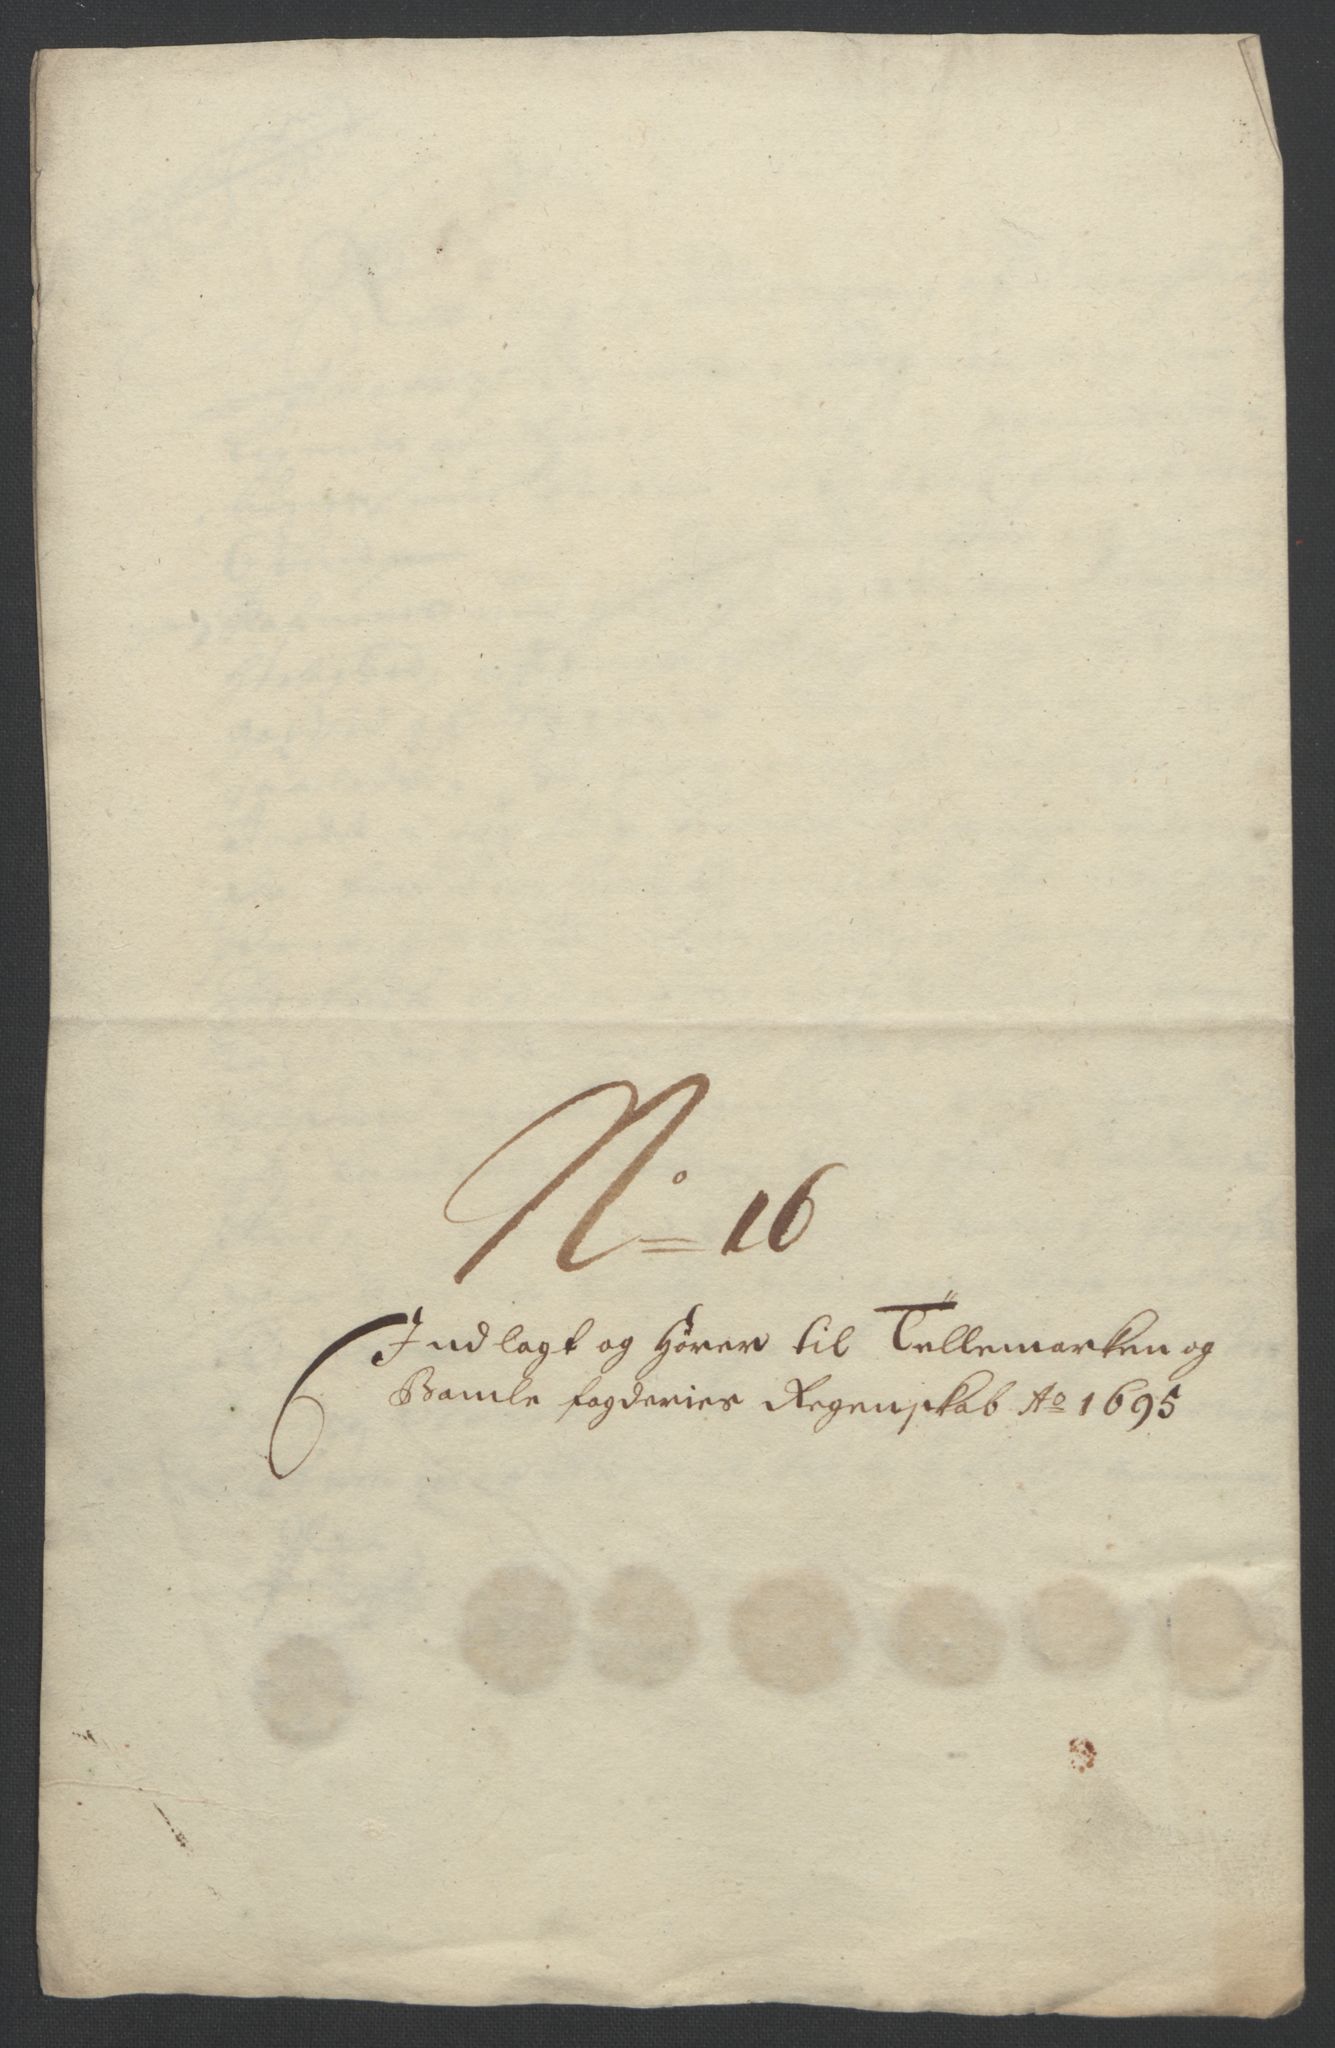 No 16
Indlagt og Hører til Tellemarken og
Bamle fogderies Regenskab Ao 1695